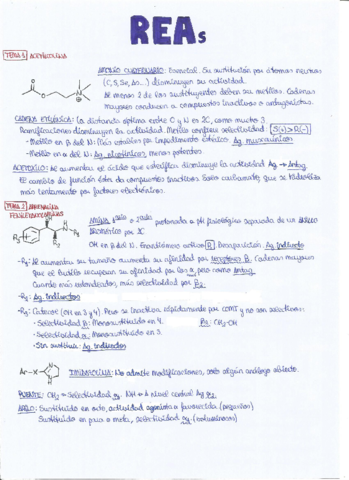 REAs
TEMA 1 ACETILCOLINA
AMONIO CUATERNARIO: Esencial. Su sustitución por átomos neutros
(C, S, Se, As...) disminuyen su actividad.
Al menos 2 de los sustituyentes deben ser metilos. Cadenas
mayores conducen a compuestos inactivos o antagonistas.
CADENA ETILÉNICA: La distancia óptima entre C y N es 2C, como mucho 3.
Ramificaciones disminuyen la actividad. Metilo confiere selectividad. S(+)>R(-)
- Metilo en β del N: Más estables por impedimento estérico. Ag muscarínico
- Metilo en α del N: Ag nicotínico, menos potentes.
ACETÓXILO: Al aumentar el ácido que esterifica disminuye la actividad Ag → Antag
El cambio de función éster da compuestos inactivos. Salvo carbamato, que se hidroliza
más lentamente por factores electrónicos.
TEMA 2 ADRENALINA
AMINA: 1aria o 2aria protonada a pH fisiológico separada de un anillo
aromático por 2C
OH en β del N. Enantiómero activo R. Desaparición: Ag Indirecto
-R1: Al aumentar su tamaño aumenta su afinidad por receptores β. Cadenas mayores
que el butilo recuperan su afinidad por los α pero como Antag
Cuando más ramificados, más selectividad por β2.
-R2: Ag Indirectos
-R3: Catecol (OH en 3 y 4) Pero se inactiva rápidamente por COMT y no son selectivos:
- Selectividad β: Monosustituido en 4. β2: CH2-OH
- Selectividad α: Monosustituido en 3.
- Sin sustituir: Ag Indirectos
Ar-X
IMIDAZOLINA: No admite modificaciones, solo algún análogo abierto.
PUENTE: CH2 → Selectividad α1. NH → A nivel central Ag α2.
ARILO: Sustituido en orto, actividad agonista α favorecida (pequeños)
Sustituido en para o meta, selectividad α1 (voluminosos)